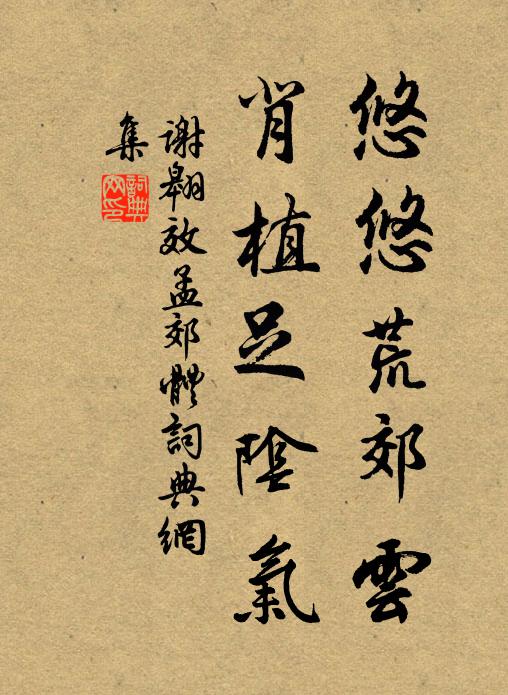 悠悠荒郊雲
肖植足陰氣
謝翱效孟郊體詞典網
集
詞典網印